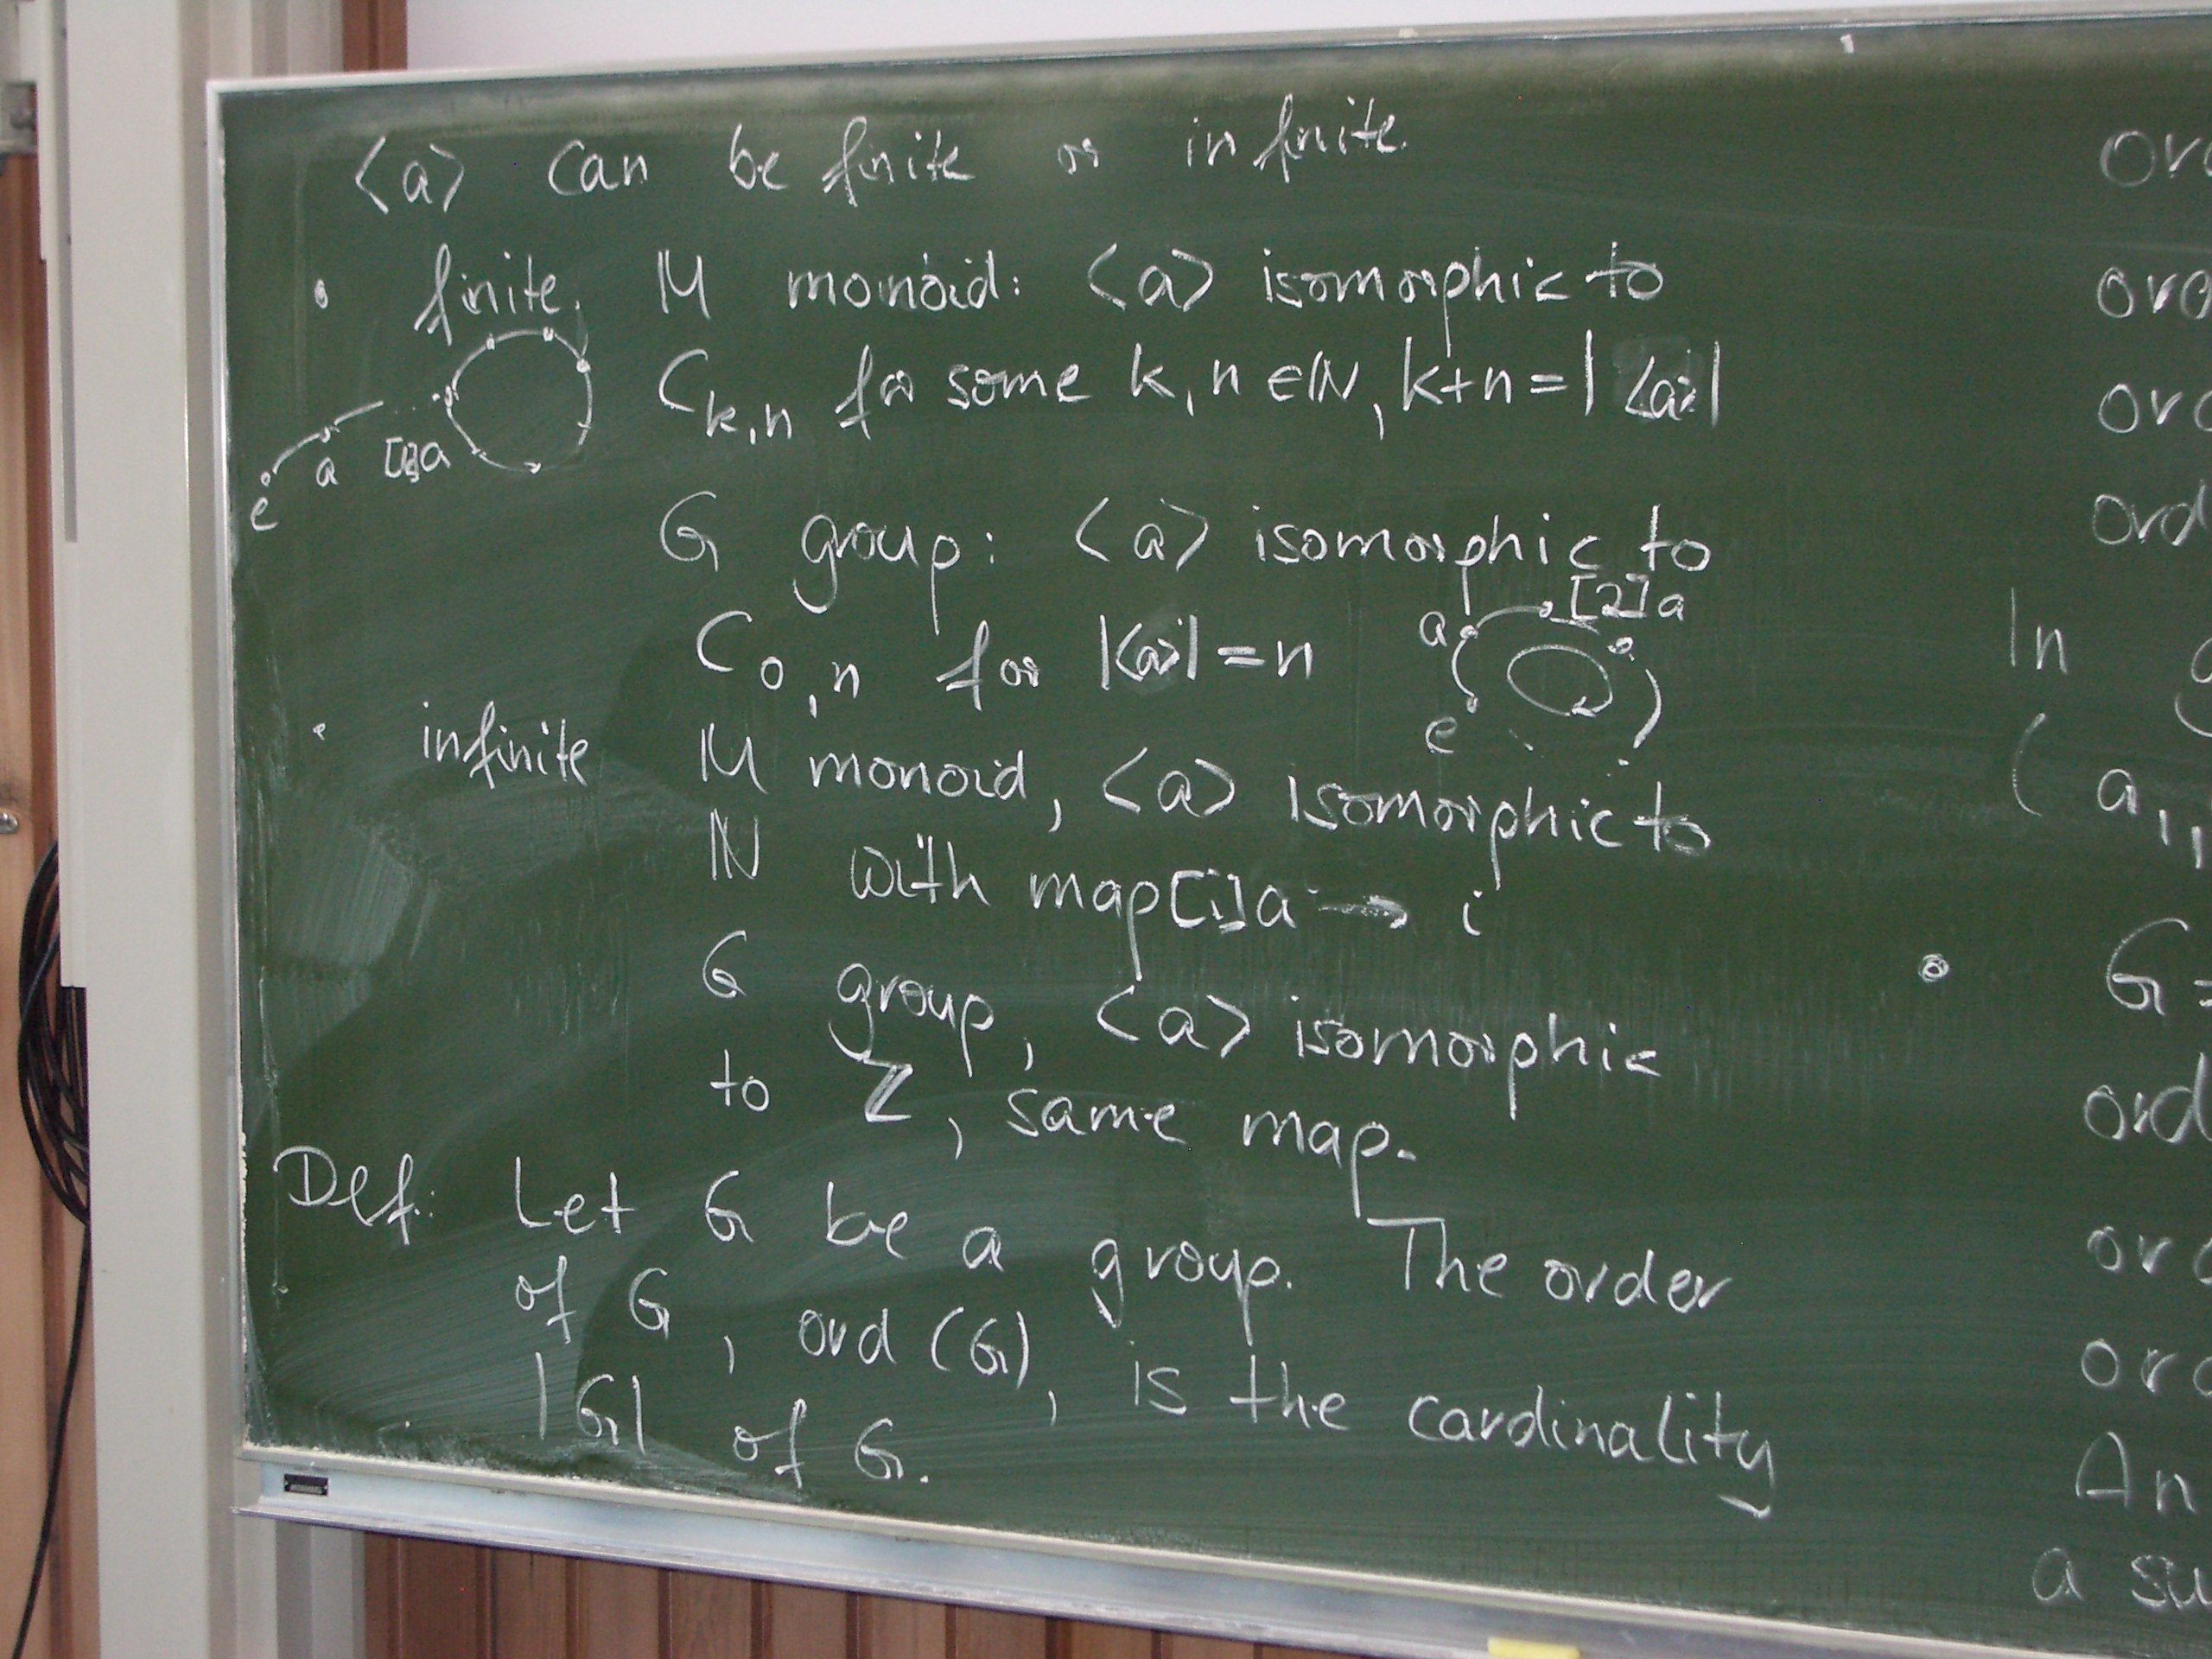 <a> can be finite or infinite.
• finite. M monoid: <a> isomorphic to
C_{k,n} for some k, n ∈ ℕ, k+n = |<a>|
e a a
G group: <a> isomorphic to
a [2]a
C_{0,n} for |<a>| = n
e
• infinite M monoid, <a> isomorphic to
ℕ with map [i]a → i
G group, <a> isomorphic
to ℤ, same map.
Def: Let G be a group. The order
of G, ord (G), is the cardinality
|G| of G.
In
( a₁,
• G =
ord
An
a